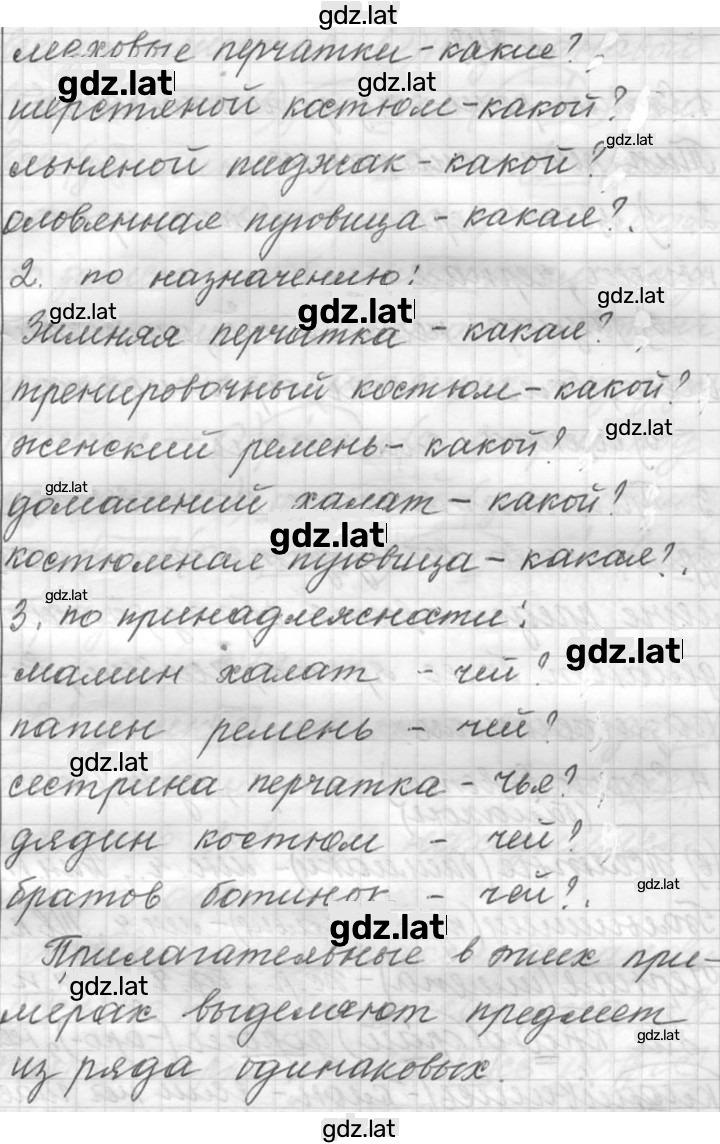 gdz.lat
меховые перчатки - какие?
gdz.lat
gdz.lat
шерстяной костюм - какой?
gdz.lat
льняной пиджак - какой?
оловянная пуговица - какая?.
2. по назначению:
gdz.lat
gdz.lat
gdz.lat
Зимняя перчатка - какая?
тренировочный костюм - какой?
gdz.lat
женский ремень - какой?
gdz.lat
домашний халат - какой?
gdz.lat
костюмная пуговица - какая?.
gdz.lat
3. по принадлежности:
gdz.lat
мамин халат - чей?
папин ремень - чей?
gdz.lat
сестрина перчатка - чья?
дядин костюм - чей?
gdz.lat
братов ботинок - чей?.
gdz.lat
Прилагательные в этих при-
gdz.lat
мерах выделяют предмет
gdz.lat
из ряда одинаковых.
gdz.lat